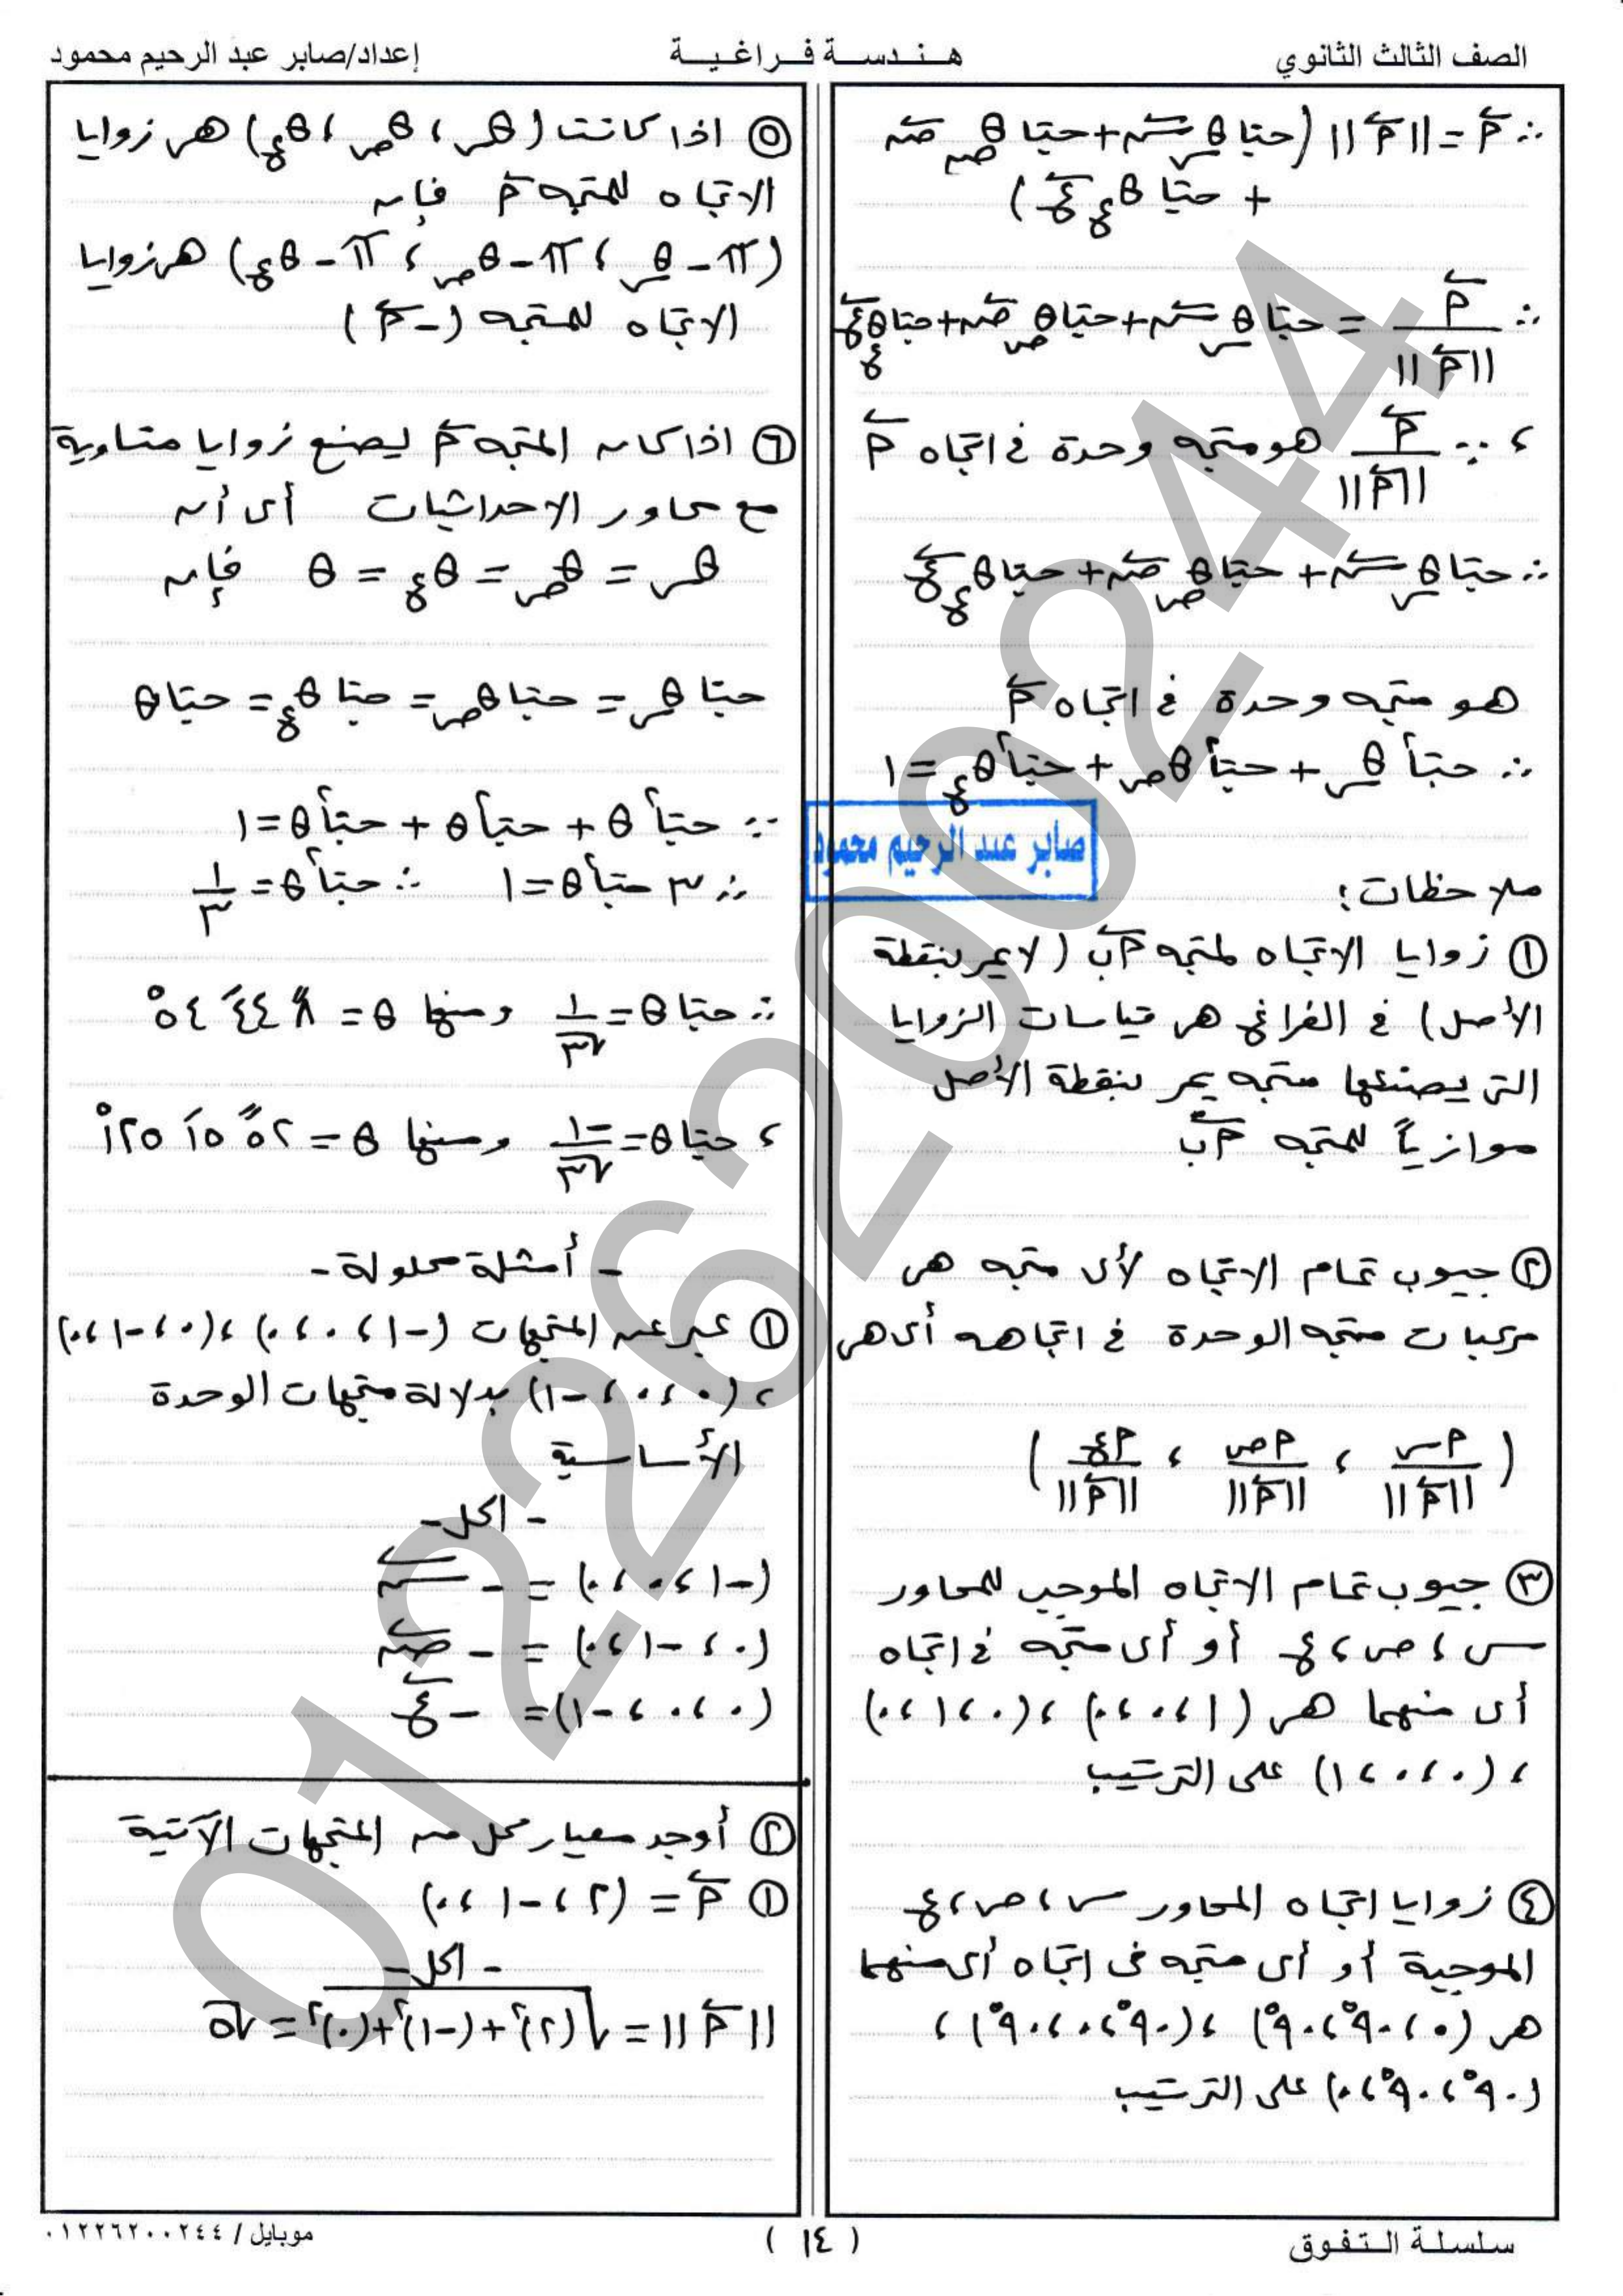 الصف الثالث الثانوي
هندسة فراغية
إعداد/صابر عبد الرحيم محمود
∴ أَ = ||أَ|| (حتا θس سَ + حتا θص صَ
+ حتا θع عَ)
∴ أَ / ||أَ|| = حتا θس سَ + حتا θص صَ + حتا θع عَ
، ∵ أَ / ||أَ|| هو متجه وحدة في اتجاه أَ
∴ حتا θس سَ + حتا θص صَ + حتا θع عَ
هو متجه وحدة في اتجاه أَ
∴ حتا² θس + حتا² θص + حتا² θع = ١
صابر عبد الرحيم محمود
ملاحظات:
① زوايا الاتجاه لمتجه أب (لا يمر بنقطة
الأصل) في الفراغ هى قياسات الزوايا
التى يصنعها متجه يمر بنقطة الأصل
موازياً للمتجه أب
② جيوب تمام الاتجاه لأى متجه هى
مركبات متجه الوحدة في اتجاهه أى هى
(أس / ||أَ|| ، أص / ||أَ|| ، أع / ||أَ||)
③ جيوب تمام الاتجاه الموجب للمحاور
س ، ص ، ع أو أى متجه في اتجاه
أى منهما هى (١،٠،٠) ، (٠،١،٠)
، (٠،٠،١) على الترتيب
④ زوايا اتجاه المحاور س ، ص ، ع
الموجبة أو أى متجه فى اتجاه أى منهما
هى (٠، ٩٠°، ٩٠°) ، (٩٠°، ٠، ٩٠°) ،
(٩٠°، ٩٠°، ٠) على الترتيب
⑤ اذا كانت (θس ، θص ، θع) هى زوايا
الاتجاه للمتجه أَ فإن
(π - θس ، π - θص ، π - θع) هى زوايا
الاتجاه للمتجه (-أَ)
⑥ اذا كان المتجه أَ يصنع زوايا متساوية
مع محاور الاحداثيات أى أن
θس = θص = θع = θ فإن
حتا θس = حتا θص = حتا θع = حتا θ
∵ حتا² θ + حتا² θ + حتا² θ = ١
∴ ٣ حتا² θ = ١ ∴ حتا² θ = ١/٣
∴ حتا θ = ١/√٣ ومنها θ = ٨ً ٤٤َ ٥٤°
، حتا θ = -١/√٣ ومنها θ = ٥٢ً ١٥َ ١٢٥°
- أمثلة محلولة -
① عبر عن المتجهات (-١،٠،٠) ، (٠،-١،٠)
، (٠،٠،-١) بدلالة متجهات الوحدة
الأساسية
- الحل -
(-١،٠،٠) = - سَ
(٠،-١،٠) = - صَ
(٠،٠،-١) = - عَ
② أوجد معيار كل من المتجهات الآتية
① أَ = (٢،-١،٠)
- الحل -
||أَ|| = √((٢)² + (-١)² + (٠)²) = √٥
سلسلة التفوق
( ١٤ )
موبايل / ٠١٢٢٦٢٠٠٢٤٤
01226200244